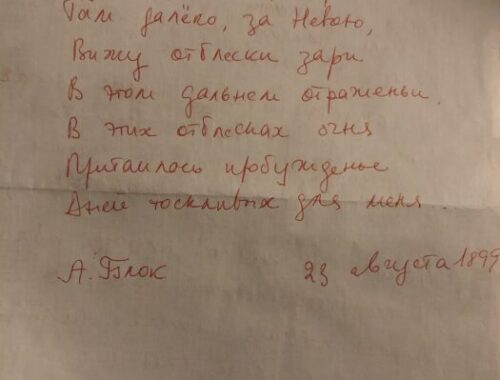 Там далёко, за Невою,
Вижу отблески зари
В этом дальнем отраженьи
В этих отблесках огня
Притаилось пробужденье
Дней тоскливых для меня
А. Блок 23 августа 1899